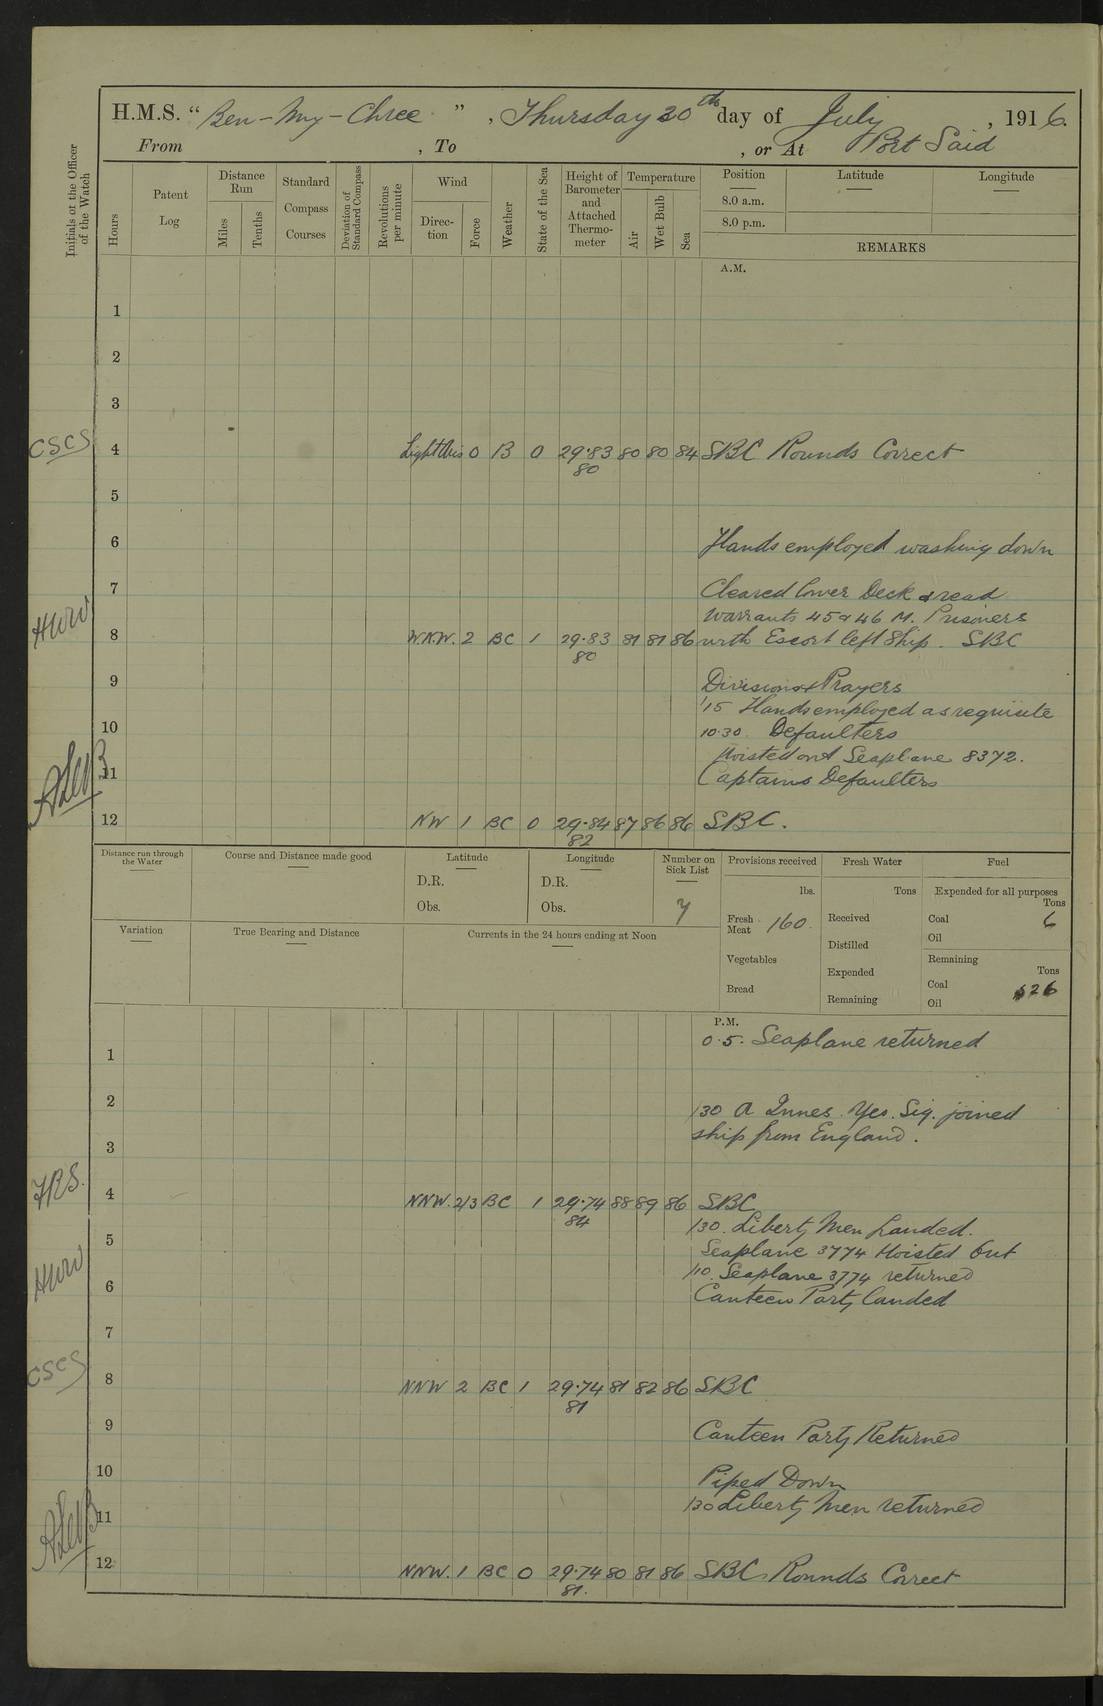 H.M.S. “ Ben-My-Chree ” , Thursday 20th day of July , 1916.
From , To , or At Port Said
Initials of the Officer of the Watch
Hours
Patent Log
Distance Run
Miles
Tenths
Standard Compass Courses
Deviation of Standard Compass
Revolutions per minute
Wind
Direction
Force
Weather
State of the Sea
Height of Barometer and Attached Thermometer
Temperature
Air
Wet Bulb
Sea
Position
8.0 a.m.
8.0 p.m.
Latitude
Longitude
REMARKS
A.M.
1
2
3
CSCS 4 0 B 0 29.83 80 80 84 SBC Rounds Correct
80
5
6 Hands employed washing down
7 Cleared lower Deck & read
Warrants 45 & 46 M. Prisoners
HWW 8 WNW. 2 BC 1 29.83 81 81 86 with Escort left Ship. SBC
80
9 Divisions & Prayers
'15 Hands employed as requisite
10 10.30 Defaulters
Hoisted out Seaplane 8372.
11 Captains Defaulters
12 NW 1 BC 0 29.84 87 86 86 SBC.
82
Distance run through the Water
Course and Distance made good
Latitude
D.R.
Obs.
Longitude
D.R.
Obs.
Number on Sick List
7
Provisions received
lbs.
Fresh Meat 160
Vegetables
Bread
Fresh Water
Tons
Received
Distilled
Expended
Remaining
Fuel
Expended for all purposes
Tons
Coal 6
Oil
Remaining
Tons
Coal 626
Oil
Variation
True Bearing and Distance
Currents in the 24 hours ending at Noon
P.M.
0.5. Seaplane returned
1
2 '30 A Innes. Yeo. Sig. joined
ship from England.
3
FBS. 4 NNW. 2/3 BC 1 29.74 88 89 86 SBC
84
'30. Liberty Men Landed.
5 Seaplane 3774 Hoisted Out
'10. Seaplane 3774 returned
HWW 6 Canteen Party landed
7
CSCS 8 NNW 2 BC 1 29.74 81 82 86 SBC
81
9 Canteen Party Returned
10 Piped Down
'30 Liberty Men returned
11
12 NNW. 1 BC 0 29.74 80 81 86 SBC Rounds Correct
81.